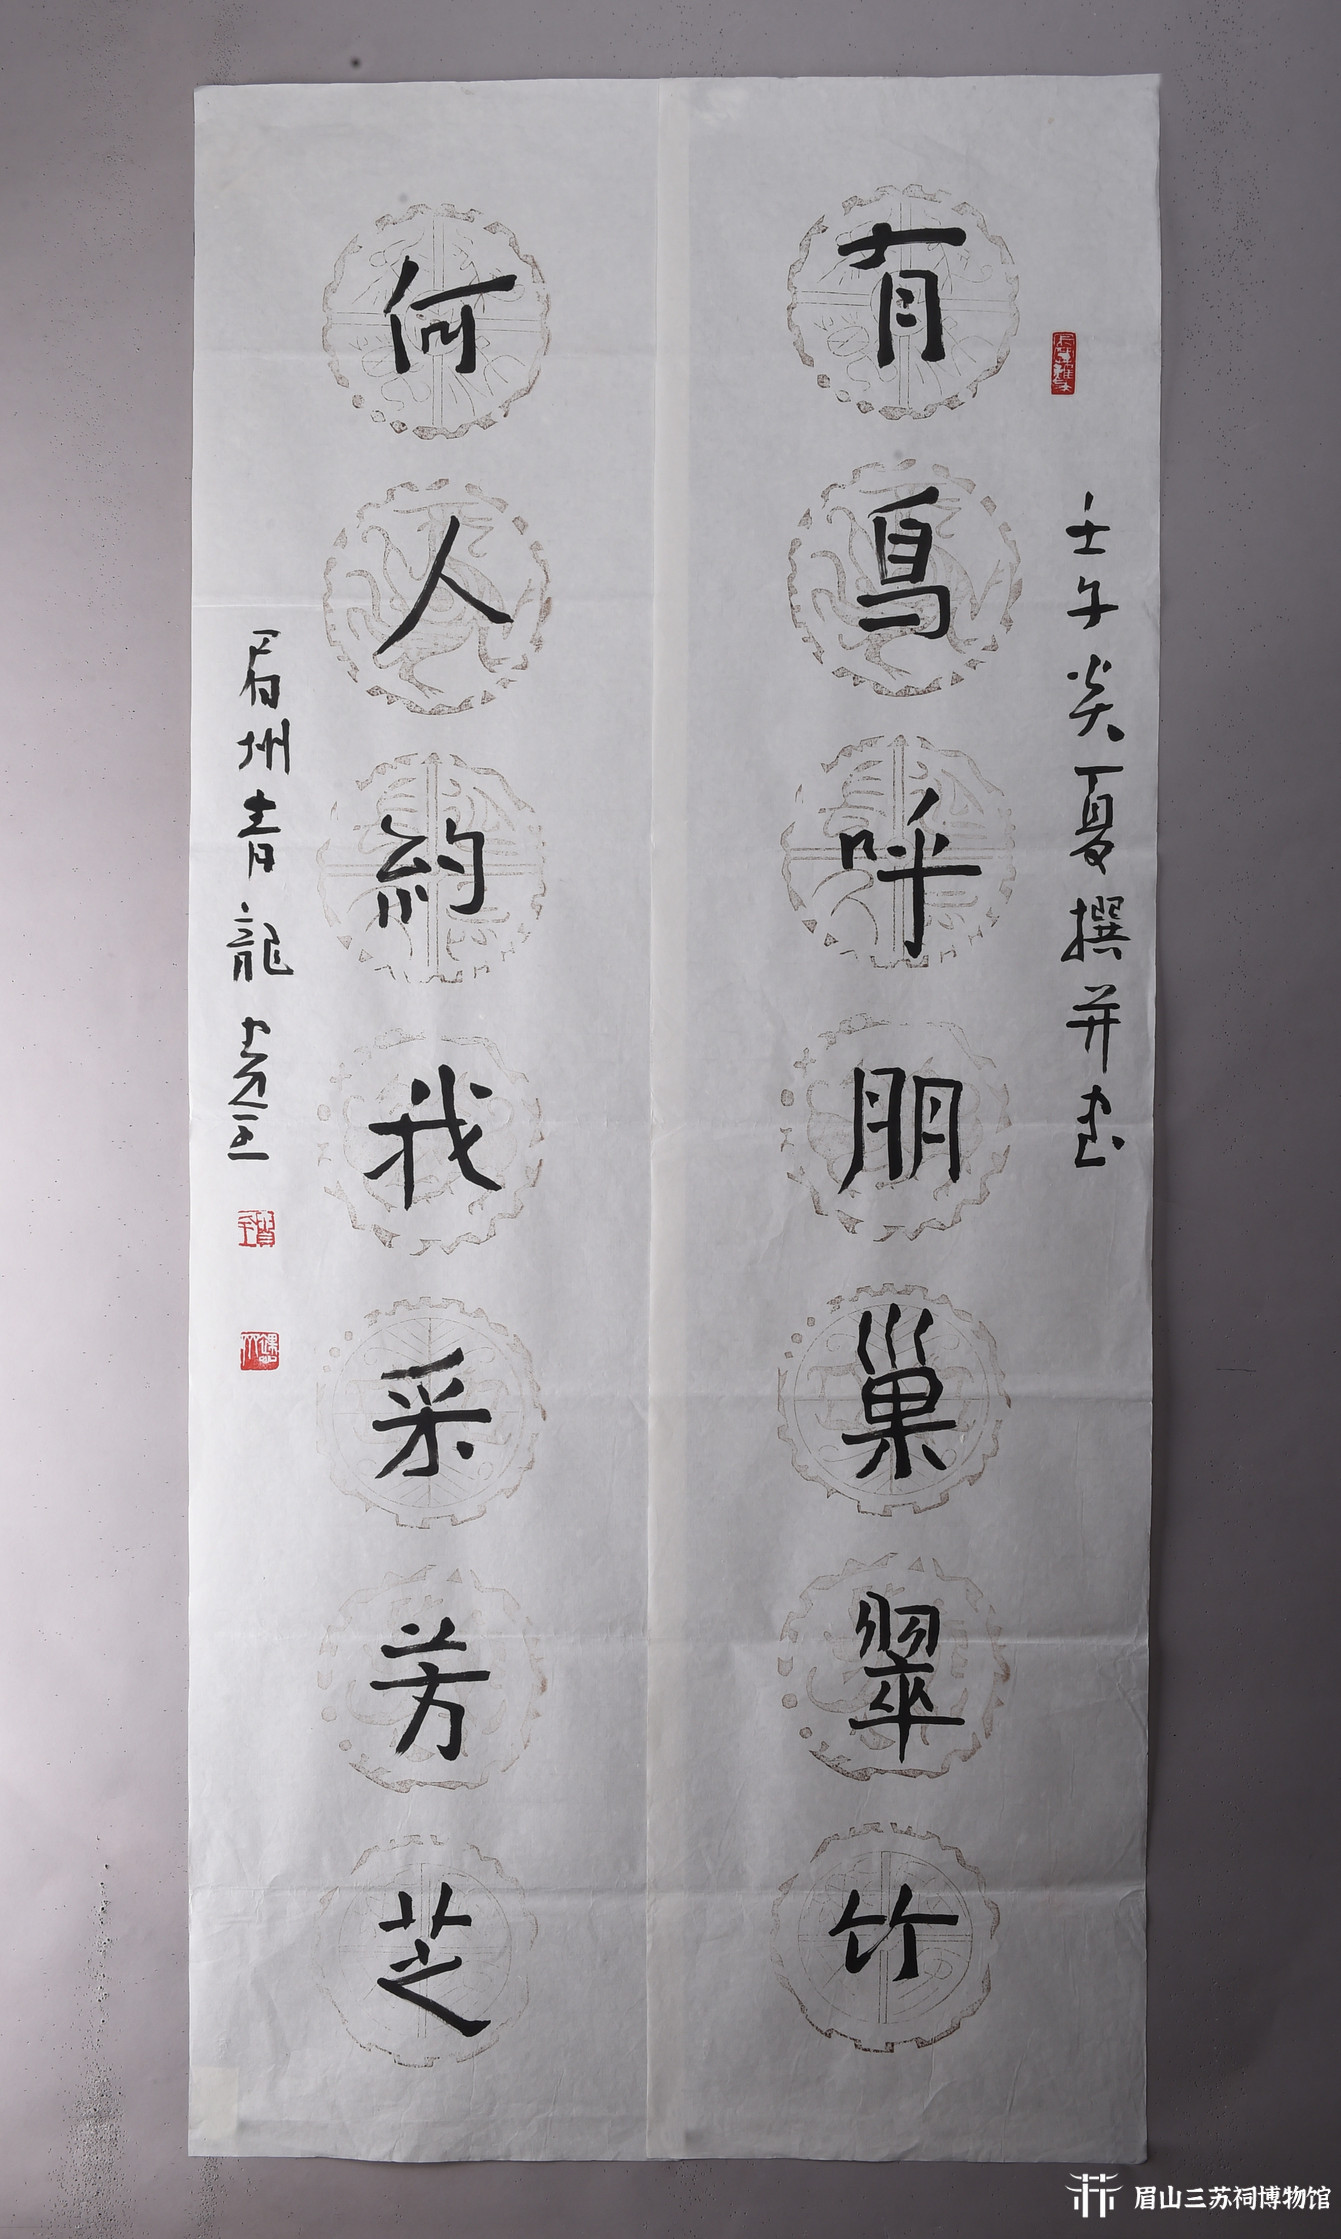 壬午炎夏撰并书
有鳥呼朋巢翠竹
何人約我采芳芝
眉州青龍
眉山三苏祠博物馆